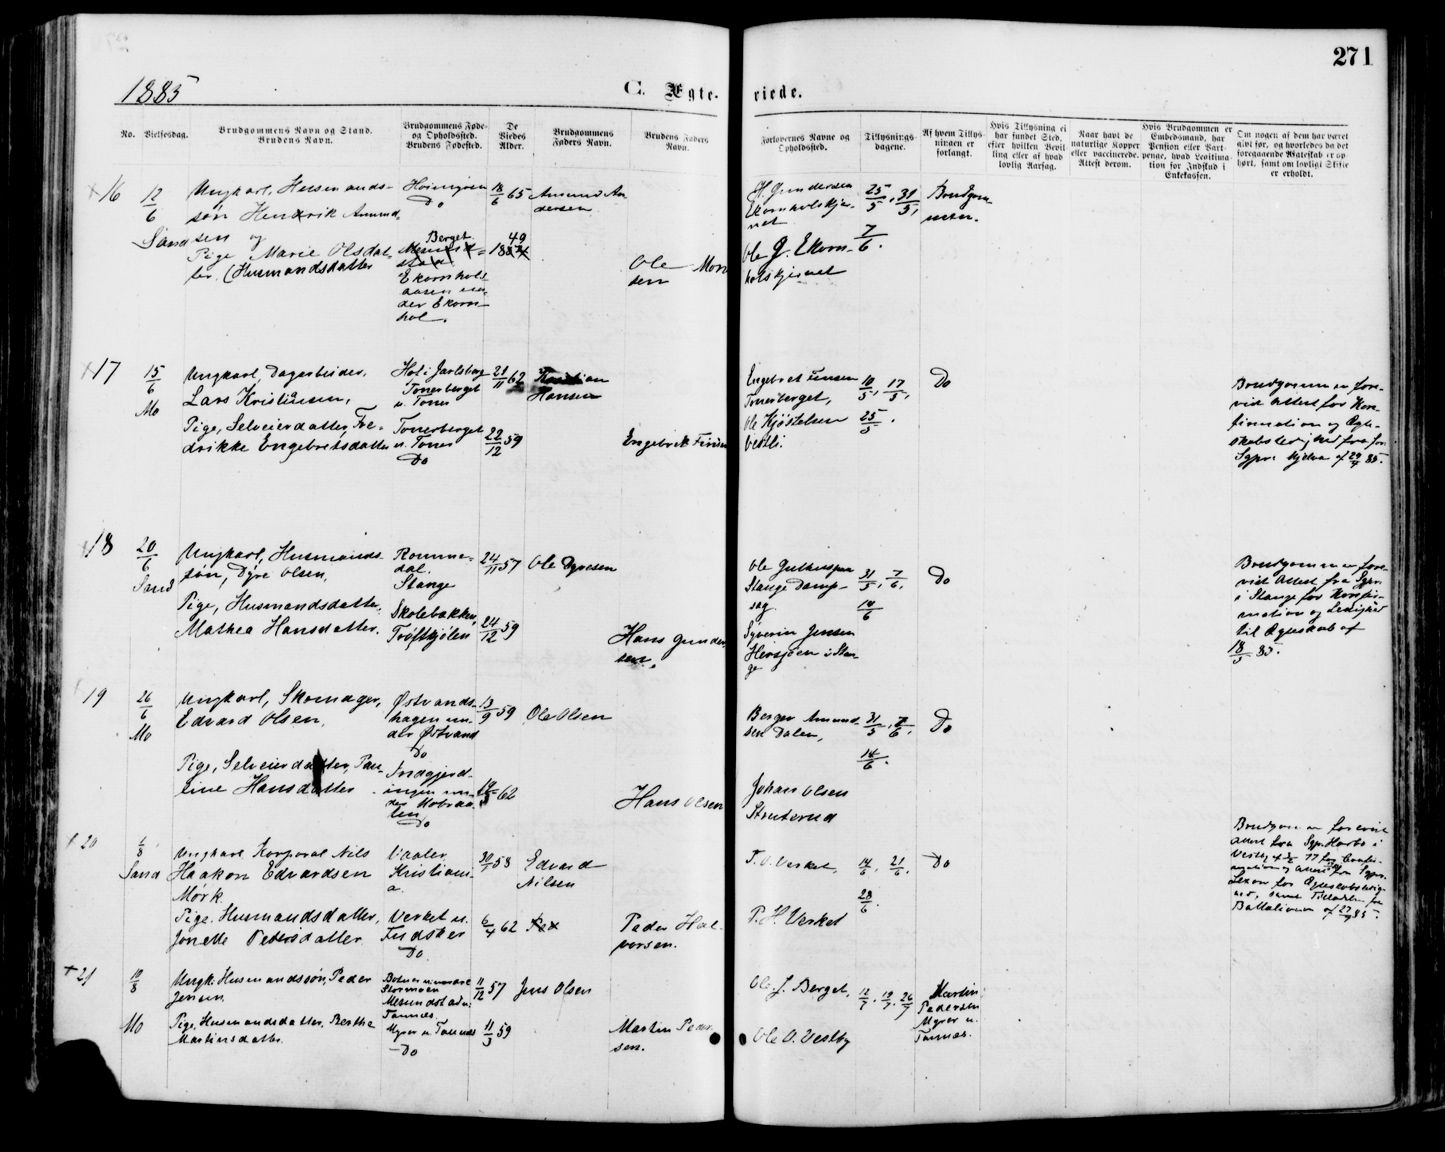 271
1885
C. Egte-
viede.
No.
Vielsesdag.
Brudgommens Navn og Stand.
Brudens Navn.
Brudgommens Føde-
og Opholdssted.
Brudens Fødested.
De
Viedes
Alder.
Brudgommens
Faders Navn.
Brudens Faders
Navn.
Forlovernes Navne og
Opholdssted.
Tillysnings-
dagene.
Af hvem Tillys-
ningen er
forlangt.
Hvis Tillysning ei
har fundet Sted,
efter hvilken Bevil-
ling eller af hvad
lovlig Aarsag.
Naar havt de
naturlige Kopper
eller vaccinerede.
Attest derom.
Hvis Brudgommen er
Embedsmand, har
Pension eller Vart-
penge, hvad Legitima-
tion for Indskud i
Enkekassen.
Om nogen af dem har været
givt før, og hvorledes da det
foregaaende Ægteskab er op-
hørt, samt om lovligt Skifte
er erholdt.
16
12/6
Sand
Ungkarl, Husmands-
søn Hendrik Amund
sen og
Pige Marie Olsdat-
ter. (Husmandsdatter
Do
Berget
Ekornhols
aasen un-
der Ekorn
hol.
18/6 65
49
18
Amund An
dersen
Ole Mon
sen
H. Gundersen
Ekornholskjer-
net
Ole G. Ekorn-
holskjernet
25/5, 31/5,
7/6.
Brudgom
men.
17
15/6
Mo
Ungkarl, Dagarbeider,
Lars Kristiansen,
Pige, Selveierdatter, Fre-
drikke Engebretsdatter
Hol i Jarlsberg
Tonerberget
u. Toner
Tonerberget
u. Toner
Do
21/11 62
22/12 59
Kristian
Hansen
Engebrit Finsen
Engebret Finsen
Tonerberget,
Ole Kjøstelsen
Vestli.
10/5, 17/5,
25/5.
Do
Brudgommen fore-
vist Attest for Kon-
firmation og Ægte-
skabsledighed fra
Sgpr. af 29/4 85.
18
20/6
Sand
Ungkarl, Husmands-
søn, Dyre Olsen,
Pige, Husmandsdatter,
Mathea Hansdatter.
Romme-
dal.
Stange
Skolebakken,
Trøftkjølen
24/11 57
24/12 59
Ole Dyresen
Hans Gunder
sen.
Ole Gulbrandsen
Stange Damp-
sag.
Syverin Jensen
Hersjøen i Stan-
ge
31/5, 7/6,
14/6
Do
Brudgommen fore-
vist Attest fra Sgpr.
i Stange for Konfir-
mation og Ledighed
til Ægteskab af
18/5 85.
19
26/6
Mo
Ungkarl, Skomager,
Edvard Olsen,
Pige, Selveierdatter, Pau-
line Hansdatter
Østvands-
hagen un-
der Østvand
Do
Indgjerd-
ingen un-
der
Do
13/9 59
62
Ole Olsen
Hans Olsen
Berger Amund-
sen Dalen,
Johan Olsen
Struterud
31/5, 7/6,
14/6.
Do
20
1/8
Sand
Ungkarl Korporal Nils
Haakon Edvardsen
Mørk.
Pige, Husmandsdatter,
Jonette Petersdatter
Vaaler
Kristiani-
a.
Verket u.
Fudsker
Do.
58
6/4 62
Edvard
Nilsen
Peder Hal-
vorsen.
T. O. Verket,
P. H. Verket
14/6, 21/6,
28/6.
Do
Brudgom. en forevist
Attest fra Sgpr.
Vestby
for Ægteskabsledig-
hed, samt Tilladelse fra
Bataillonen af
21
10/8
Mo
Ungk. Husmandssøn, Peder
Jensen
Pige, Husmandsdatter, Berthe
Martinsdatter.
Stormoen
Tannæs.
Myrer u. Tannæs
Do
11/12 57
11/3 59
Jens Olsen
Martin Peder-
sen.
Ole J. Berget,
Ole O. Vestby
12/7, 19/7, 26/7
Martin
Pedersen
Myrer u.
Tannæs.